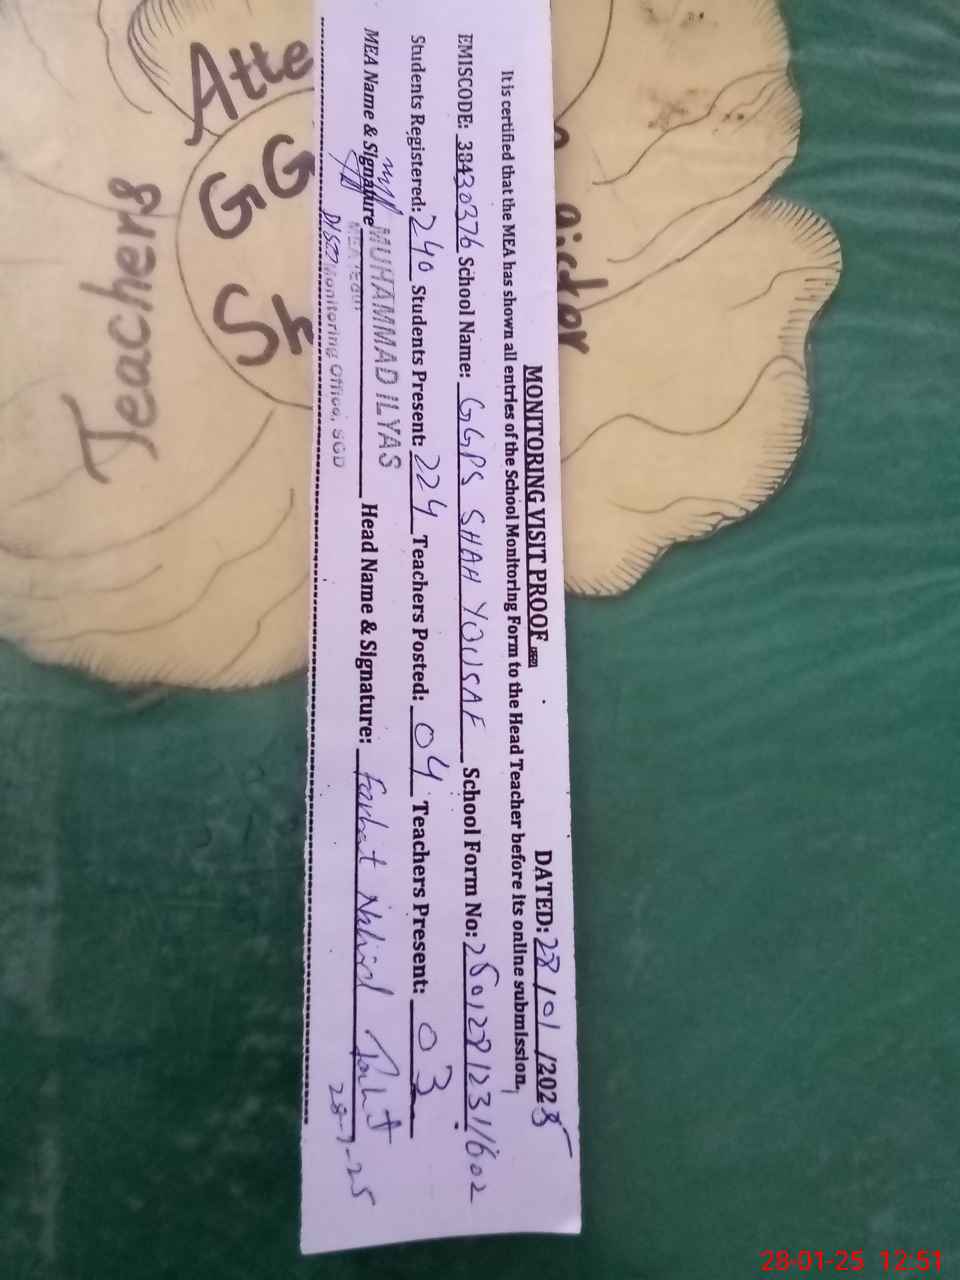 MONITORING VISIT PROOF DATED: 28/01/2025
It is certified that the MEA has shown all entries of the School Monitoring Form to the Head Teacher before its online submission.
EMISCODE: 38430376 School Name: GGPS SHAH YOUSAF School Form No:
Students Registered: 240 Students Present: 224 Teachers Posted: 04 Teachers Present: 03
MEA Name & Signature MUHAMMAD ILYAS Head Name & Signature: Farhat Nahid
MEA
Monitoring Office, SGD
28-1-25
Atte
GG
Sh
Teachers
28-01-25 12:51